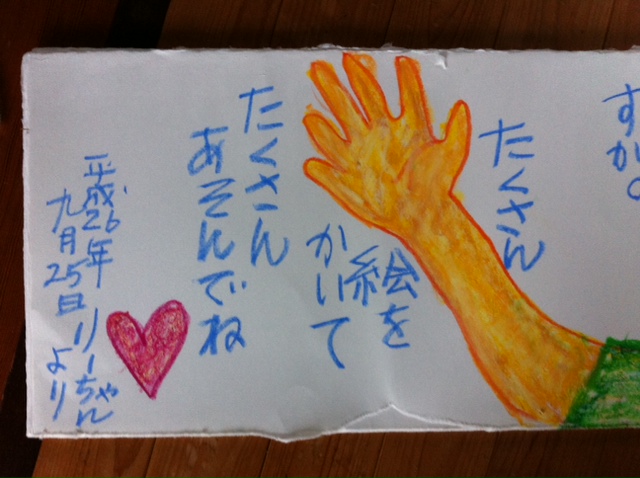 すか。
たくさん
絵を
かいて
たくさん
あそんでね
平成26年 りーちゃん
九月25日 より